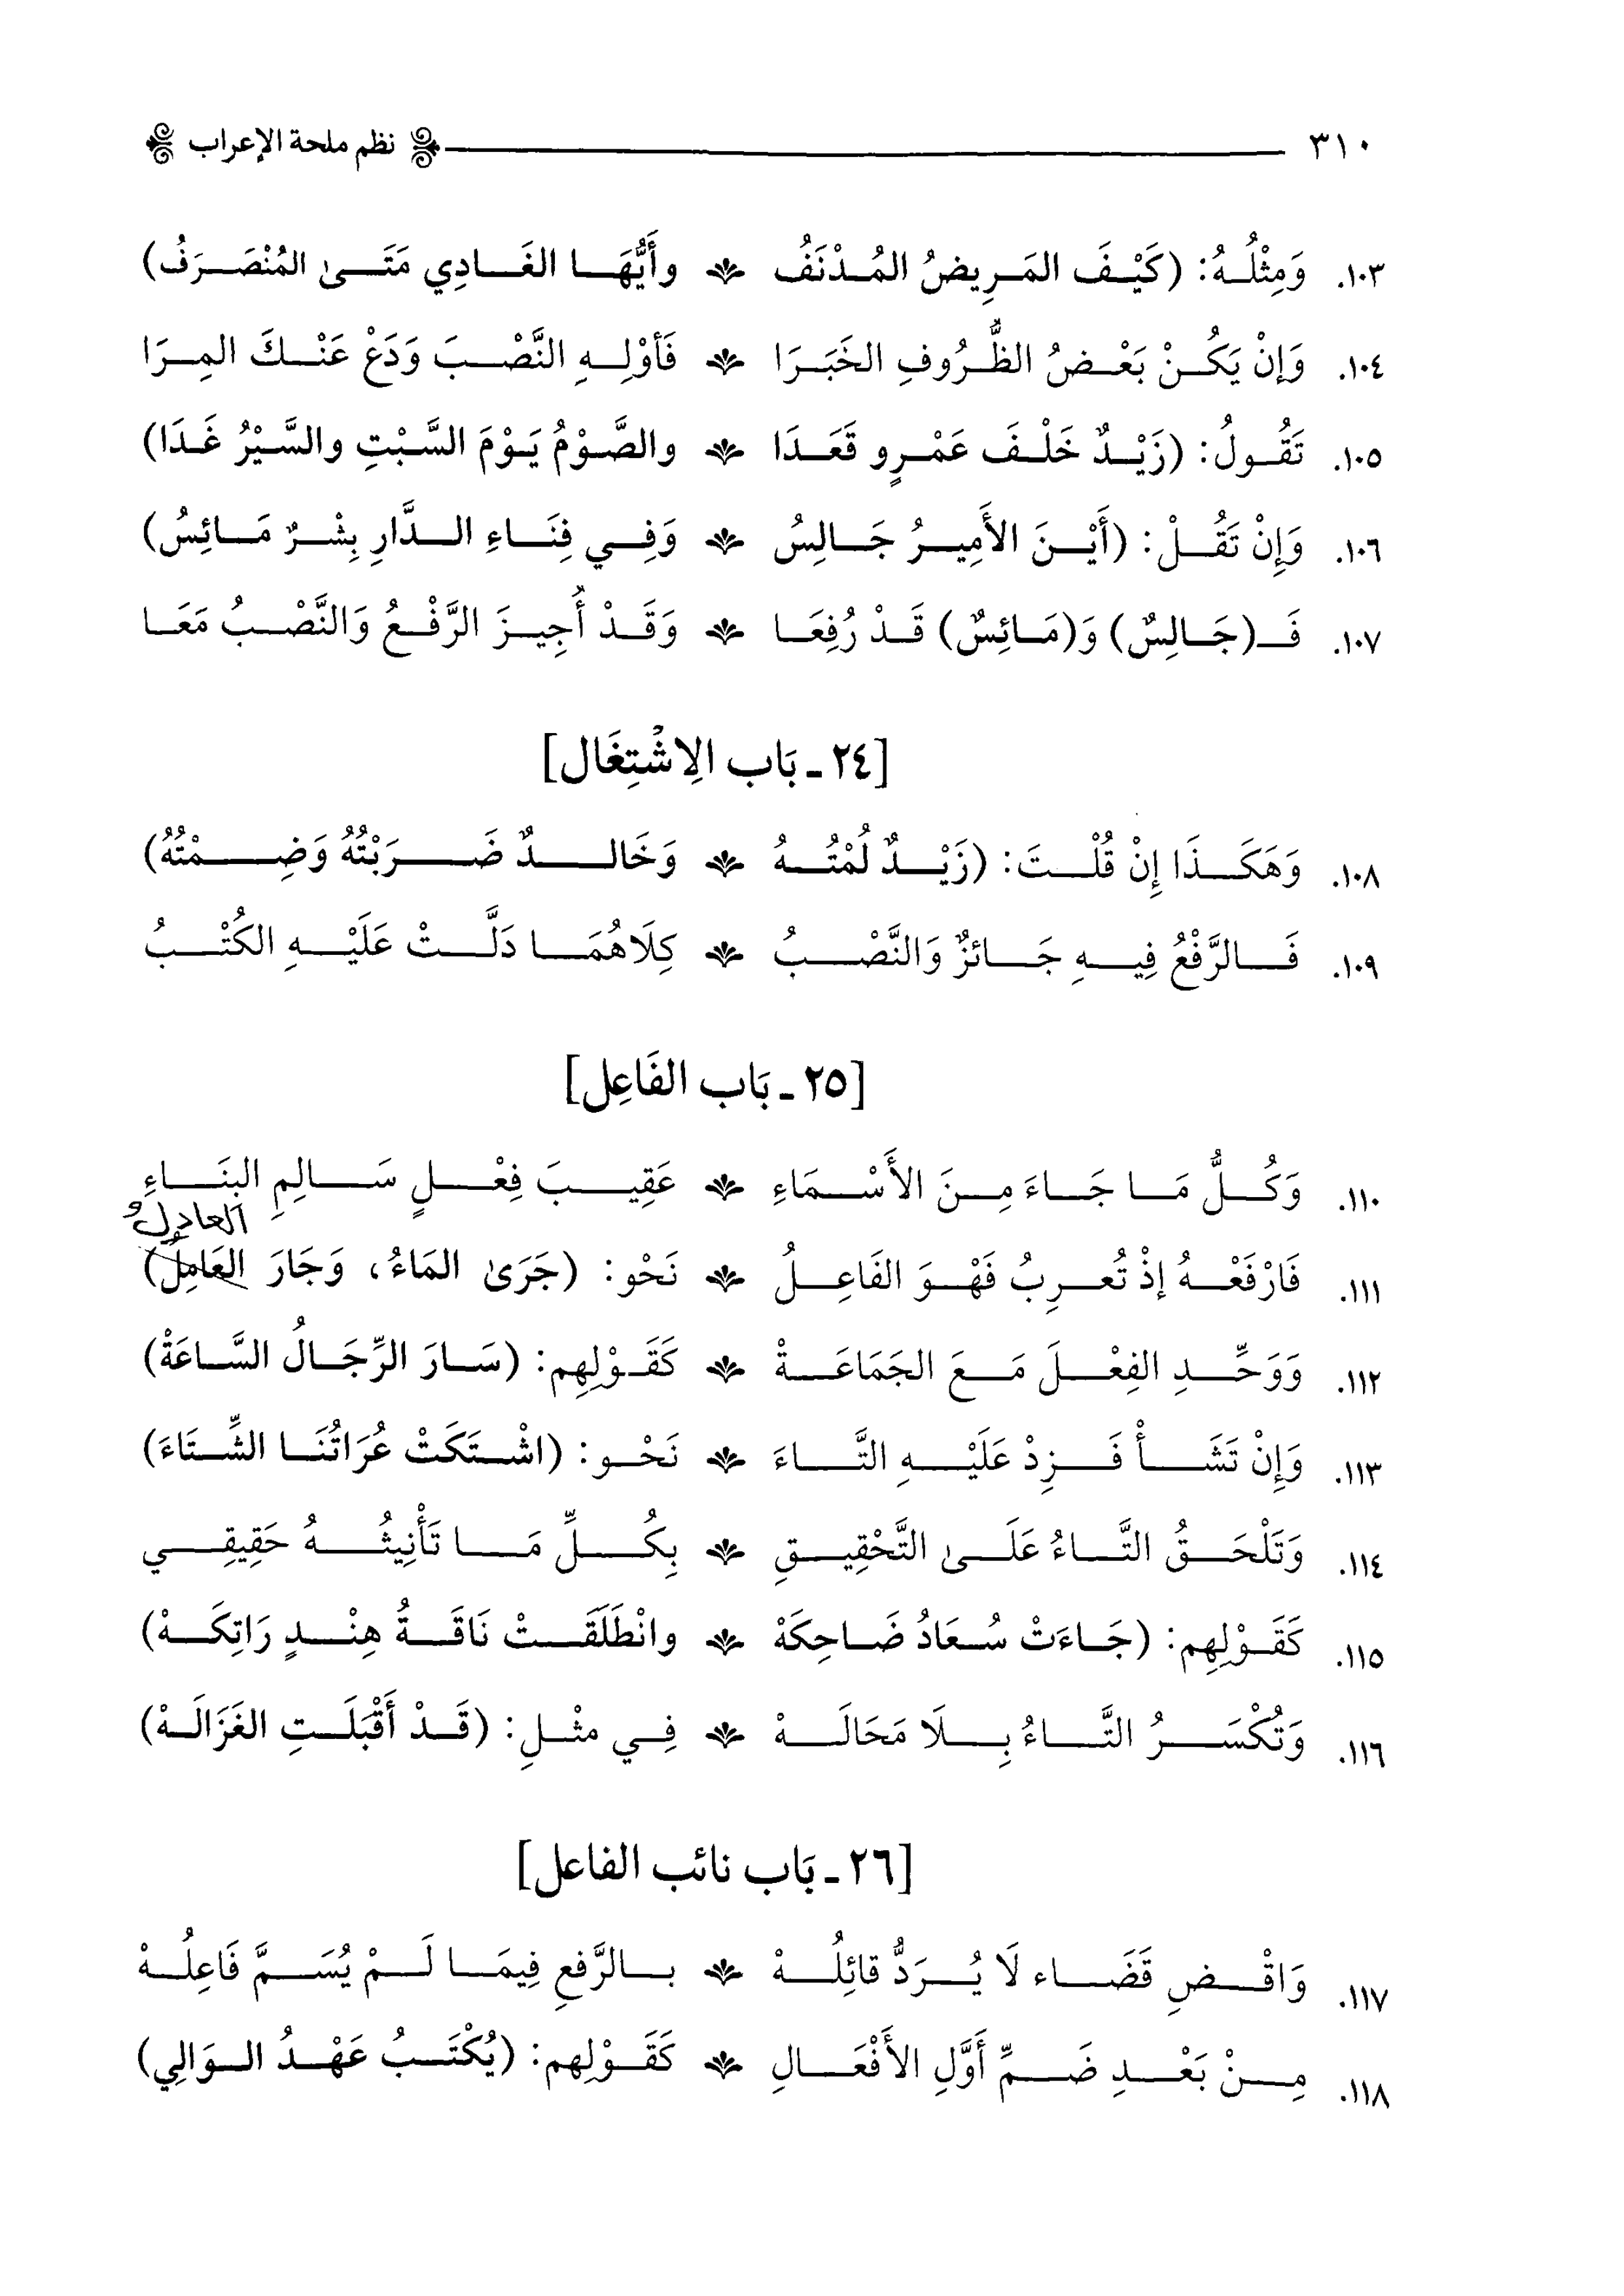 ٣١٠ نظم ملحة الإعراب
١٠٣. وَمِثْلُهُ: (كَيْفَ المَرِيضُ المُدْنَفُ وأَيُّهَا الغَادِي مَتَىٰ المُنْصَرَفُ)
١٠٤. وَإِنْ يَكُنْ بَعْضُ الظُّرُوفِ الخَبَرَا فَأوْلِهِ النَّصْبَ وَدَعْ عَنْكَ المِرَا
١٠٥. تَقُولُ: (زَيْدٌ خَلْفَ عَمْرٍو قَعَدَا والصَّوْمُ يَوْمَ السَّبْتِ والسَّيْرُ غَدَا)
١٠٦. وَإِنْ تَقُلْ: (أَيْنَ الأَمِيرُ جَالِسُ وَفِي فِنَاءِ الدَّارِ بِشْرٌ مَائِسُ)
١٠٧. فَـ(جَالِسٌ) وَ(مَائِسٌ) قَدْ رُفِعَا وَقَدْ أُجِيزَ الرَّفْعُ وَالنَّصْبُ مَعَا
[٢٤ ـ بَاب الِاشْتِغَال]
١٠٨. وَهَكَذَا إِنْ قُلْتَ: (زَيْدٌ لُمْتُهُ وَخَالدٌ ضَرَبْتُهُ وَضِمْتُهُ)
١٠٩. فَالرَّفْعُ فِيهِ جَائزٌ وَالنَّصْبُ كِلَاهُمَا دَلَّتْ عَلَيْهِ الكُتْبُ
[٢٥ ـ بَاب الفَاعِل]
١١٠. وَكُلُّ مَا جَاءَ مِنَ الأَسْمَاءِ عَقِيبَ فِعْلٍ سَالِمِ البِنَاءِ
العادلُ
١١١. فَارْفَعْهُ إذْ تُعرِبُ فَهْوَ الفَاعِلُ نَحْو: (جَرَىٰ المَاءُ، وَجَارَ العَامِلُ)
١١٢. وَوَحِّدِ الفِعْلَ مَعَ الجَمَاعَةْ كَقَوْلِهِم: (سَارَ الرِّجَالُ السَّاعَةْ)
١١٣. وَإِنْ تَشَأْ فَزِدْ عَلَيْهِ التَّاءَ نَحْو: (اشْتَكَتْ عُرَاتُنَا الشِّتَاءَ)
١١٤. وَتَلْحَقُ التَّاءُ عَلَىٰ التَّحْقِيقِ بِكُلِّ مَا تَأْنِيثُهُ حَقِيقِي
١١٥. كَقَوْلِهِم: (جَاءَتْ سُعَادُ ضَاحِكَهْ وانْطَلَقَتْ نَاقَةُ هِنْدٍ رَاتِكَهْ)
١١٦. وَتُكْسَرُ التَّاءُ بِلَا مَحَالَهْ فِي مثْلِ: (قَدْ أَقْبَلَتِ الغَزَالَهْ)
[٢٦ ـ بَاب نائب الفاعل]
١١٧. وَاقْضِ قَضَاء لَا يُرَدُّ قائِلُهْ بالرَّفعِ فِيمَا لَمْ يُسَمَّ فَاعِلُهْ
١١٨. مِنْ بَعْدِ ضَمِّ أَوَّلِ الأَفْعَالِ كَقَوْلِهم: (يُكْتَبُ عَهْدُ الوَالِي)